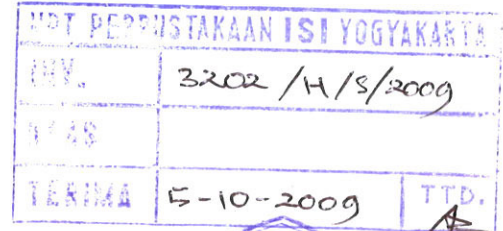 UPT PERPUSTAKAAN ISI YOGYAKARTA
INV. 3202 /H/S/2009
KLAS
TERIMA 5-10-2009 TTD.